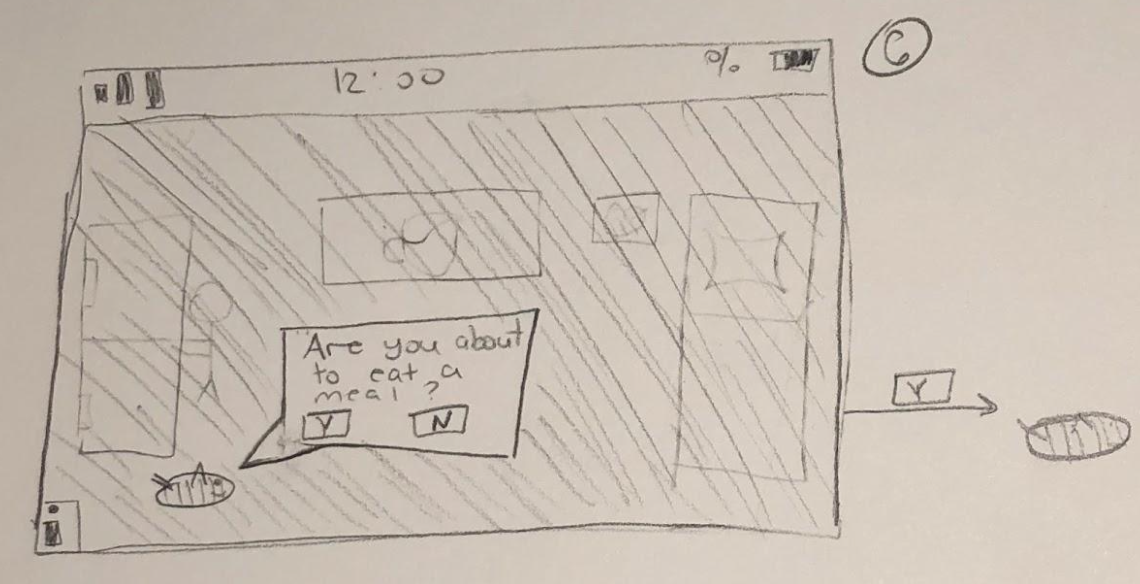 12:00 %
C
Are you about
to eat a
meal?
Y N
Y